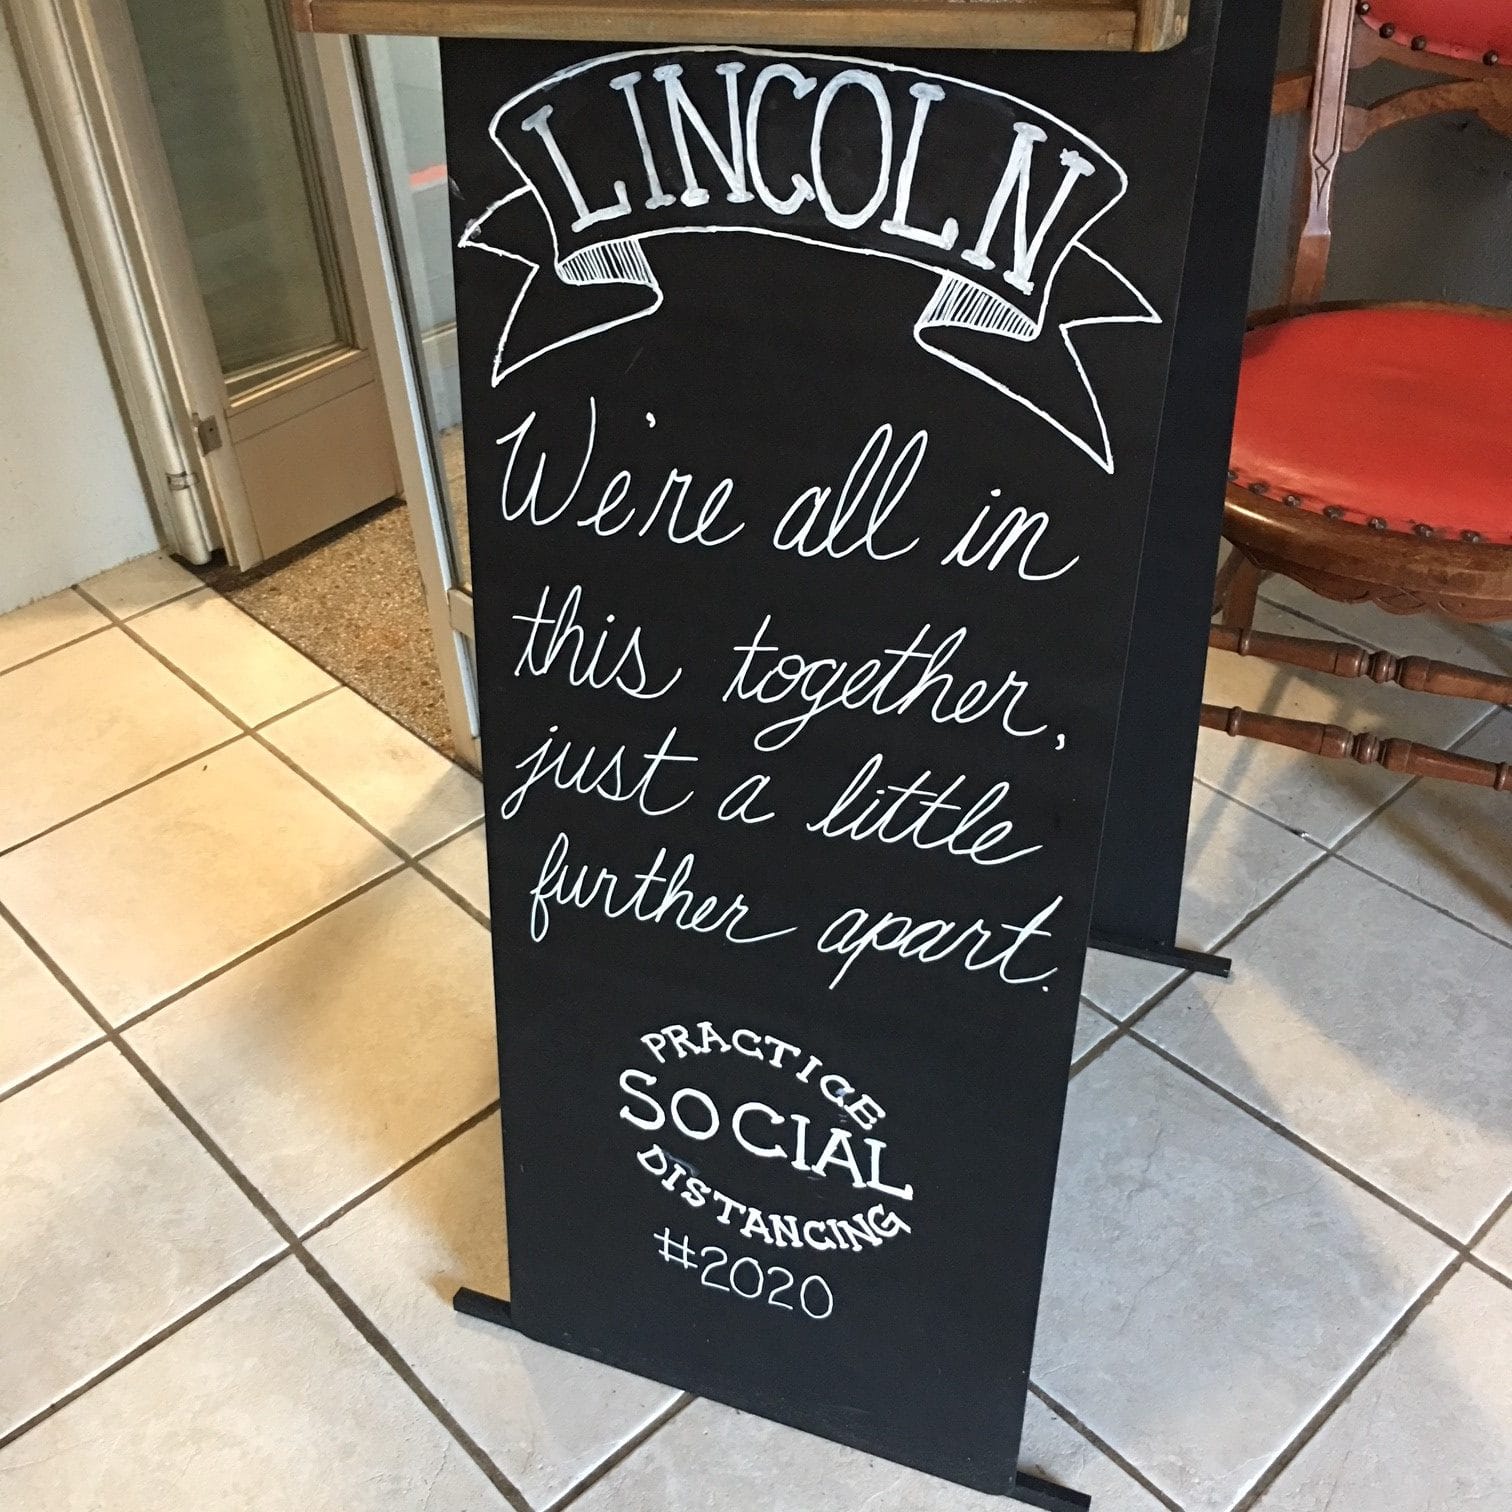 LINCOLN
We're all in
this together,
just a little
further apart.
PRACTICE
SOCIAL
DISTANCING
#2020